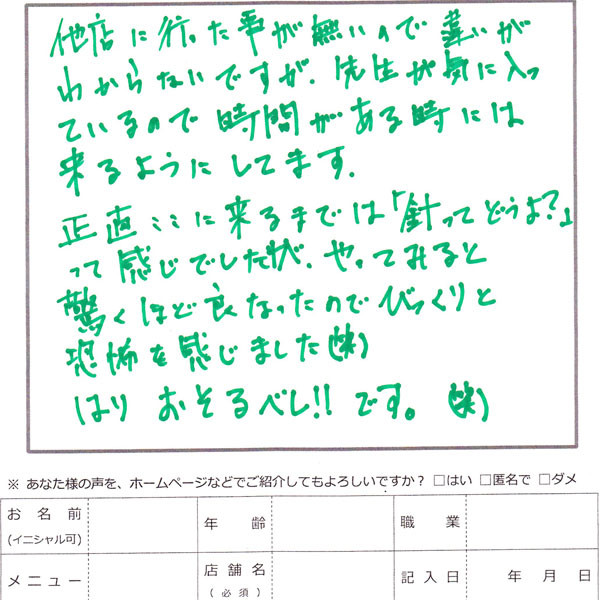 他店に行った事が無いので違いが
わからないですが、先生が気に入っ
ているので時間がある時には
来るようにしてます。
正直ここに来るまでは「針ってどうよ?」
って感じでしたが、やってみると
驚くほど良なったのでびっくりと
恐怖を感じました(笑)
はり おそるべし!!です。(笑)
※ あなた様の声を、ホームページなどでご紹介してもよろしいですか? □はい □匿名で □ダメ
お名前 年齢 職業
(イニシャル可)
メニュー 店舗名 記入日 年 月 日
(必須)